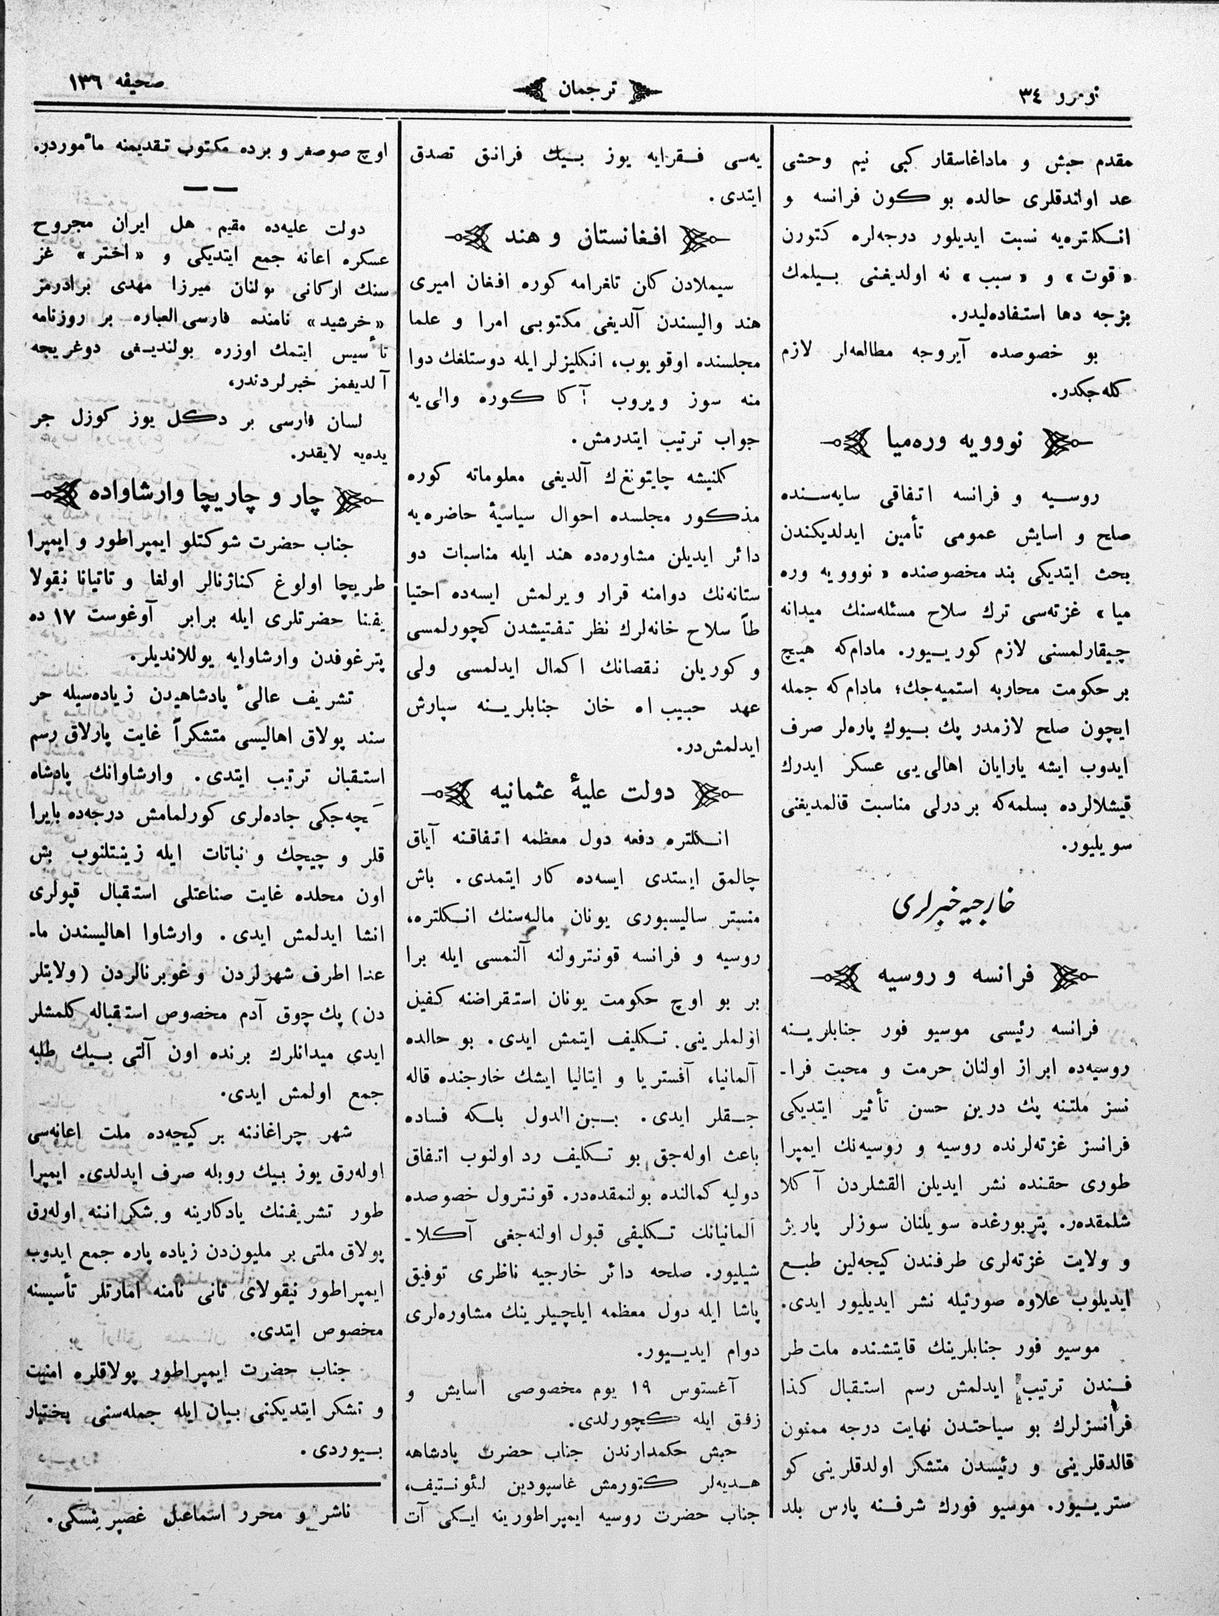 نومرو ٣٤
ترجمان
صحیفه ١٣٦
مقدم حبش و ماداغاسقار کبی نیم وحشی
عد اولندقلری حالده بو کون فرانسه و
انکلتره‌یه نسبت ایدیلور درجه‌لره کتورن
«قوت» و «سبب» نه اولدیغنی بیلمك
بزجه دها استفاده‌لیدر.
بو خصوصده آیروجه مطالعه‌لر لازم
کله‌جکدر.
نووویه وره‌میا
روسیه و فرانسه اتفاقی سایه‌سنده
صلح و اسایش عمومی تأمین ایدلدیکندن
بحث ایتدیکی بند مخصوصنده «نووویه وره
میا» غزته‌سی ترك سلاح مسئله‌سنك میدانه
چیقارلمسنی لازم کوریور. مادام‌که هیچ
بر حکومت محاربه استمیه‌جك؛ مادام‌که جمله
ایچون صلح لازمدر پك بیوك پاره‌لر صرف
ایدوب ایشه یارایان اهالی‌یی عسکر ایدرك
قیشلالرده بسلمه‌که بر درلی مناسبت قالمدیغنی
سویلیور.
خارجیه خبرلری
فرانسه و روسیه
فرانسه رئیسی موسیو فور جنابلرینه
روسیه‌ده ابراز اولنان حرمت و محبت فرا۔
نسز ملتنه پك درین حسن تأثیر ایتدیکی
فرانسز غزته‌لرنده روسیه و روسیه‌نك ایمپرا
طوری حقنده نشر ایدیلن القشلردن آکلا
شلمقده‌در. پتربورغده سویلنان سوزلر پاریژ
و ولایت غزته‌لری طرفندن کیجه‌لین طبع
ایدیلوب علاوه صورتیله نشر ایدیلیور ایدی.
موسیو فور جنابلرینك قایتشنده ملت طر
فندن ترتیب ایدلمش رسم استقبال کذا
فرانسزلرك بو سیاحتدن نهایت درجه ممنون
قالدقلرینی و رئیسدن متشکر اولدقلرینی کو
ستریور. موسیو فورك شرفنه پارس بلد
یه‌سی فقرایه یوز بیك فرانق تصدق
ایتدی.
افغانستان و هند
سیملادن کلن تلغرامه کوره افغان امیری
هند والیسندن آلدیغی مکتوبی امرا و علما
مجلسنده اوقویوب، انکلیزلر ایله دوستلغك دوا
منه سوز ویروب آکا کوره والی‌یه
جواب ترتیب ایتدرمش.
کلنیشه چایتونغ‌ك آلدیغی معلوماته کوره
مذکور مجلسده احوال سیاسیهٔ حاضره‌یه
دائر ایدیلن مشاوره‌ده هند ایله مناسبات دو
ستانه‌نك دوامنه قرار ویرلمش ایسه‌ده احتیا
طاً سلاح خانه‌لرك نظر تفتیشدن کچورلمسی
و کوریلن نقصانك اکمال ایدلمسی ولی
عهد حبیب اه خان جنابلرینه سپارش
ایدلمش‌در.
دولت علیهٔ عثمانیه
انکلتره دفعه دول معظمه اتفاقنه آیاق
چالمق ایستدی ایسه‌ده کار ایتمدی. باش
منستر سالیسبوری یونان مالیه‌سنك انکلتره،
روسیه و فرانسه قونترولنه آلنمسی ایله برا
بر بو اوچ حکومت یونان استقراضنه کفیل
اولملرینی تکلیف ایتمش ایدی. بو حالده
آلمانیا، آفستریا و ایتالیا ایشك خارجنده قاله
جقلر ایدی. بین‌الدول بلکه فساده
باعث اوله‌جق بو تکلیف رد اولنوب اتفاق
دولیه کمالنده بولنمقده‌در. قونترول خصوصده
آلمانیانك تکلیفی قبول اولنه‌جغی آکلا۔
شیلیور. صلحه دائر خارجیه ناظری توفیق
پاشا ایله دول معظمه ایلچیلرینك مشاوره‌لری
دوام ایدیور.
آغستوس ١٩ یوم مخصوصی اسایش و
رفق ایله کچورلدی.
حبش حکمدارندن جناب حضرت پادشاهه
هدیه‌لر کتورمش غاسپودین لئونتیف،
جناب حضرت روسیه ایمپراطورینه ایکی آت
اوچ صوصغر و برده مکتوب تقدیمنه مأموردر.
دولت علیه‌ده مقیم هل ایران مجروح
عسکره اعانه جمع ایتدیکی و «اختر» غز
سنك ارکانی بولنان میرزا مهدی برادرمز
«خرشید» نامنده فارسی‌العباره بر روزنامه
تأسیس ایتمك اوزره بولندیغی دوغریجه
آلدیغمز خبرلردندر،
لسان فارسی بر دکل یوز کوزل جر
یده‌یه لایقدر.
چار و چاریچا وارشاواده
جناب حضرت شوکتلو ایمپراطور و ایمپرا
طریچا اولوغ کناژنالر اولغا و تاتیانا نیقولا
یفنا حضرتلری ایله برابر آوغوست ١٧ ده
پترغوفدن وارشاوایه یوللاندیلر.
تشریف عالیٔ پادشاهیدن زیاده‌سیله خر
سند پولاق اهالیسی متشکراً غایت پارلاق رسم
استقبال ترتیب ایتدی. وارشاوانك پادشاه
کچه‌جکی جاده‌لری کورلمامش درجه‌ده بایرا
قلر و چیچك و نباتات ایله زینتلنوب بش
اون محلده غایت صناعتلی استقبال قپولری
انشا ایدلمش ایدی. وارشاوا اهالیسندن ما۔
عدا اطرف شهرلردن و غوبرنالردن (ولایتلر
دن) پك چوق آدم مخصوص استقباله کلمشلر
ایدی میدانلرك برنده اون آلتی بیك طلبه
جمع اولمش ایدی.
شهر چراغاننه بر کیجه‌ده ملت اعانه‌سی
اوله‌رق یوز بیك روبله صرف ایدلدی. ایمپرا
طور تشریفنك یادکارینه و شکراننه اوله‌رق
پولاق ملتی بر ملیون‌دن زیاده پاره جمع ایدوب
ایمپراطور نیقولای ثانی نامنه امارتلر تأسیسنه
مخصوص ایتدی.
جناب حضرت ایمپراطور پولاقلره امنیت
و تشکر ایتدیکنی بیان ایله جمله‌سنی بختیار
بیوردی.
ناشر و محرر اسماعیل غصپرینسکی.